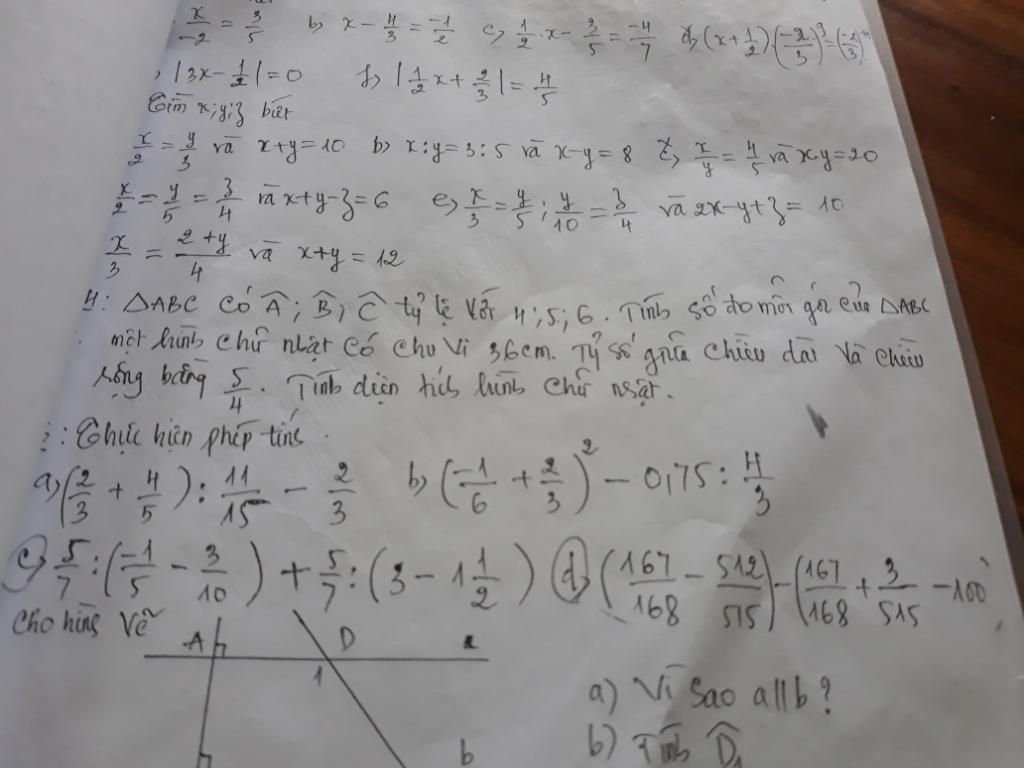 x/-2 = 3/5 b) x - 4/3 = -1/2 c) 1/2 . x - 3/5 = -4/7 (x + 1/2) . (-2/3)
) |3x - 1/2| = 0 f) |1/2 x + 2/3| = 4/5
Tìm x; y; z biết
x/2 = y/3 và x+y = 10 b) x : y = 3 : 5 và x - y = 8 c) x/y = 4/5 và x.y = 20
x/2 = y/5 = z/4 và x+y-z = 6 e) x/3 = y/5 ; y/10 = z/4 và 2x-y+z = 10
x/3 = 2+y/4 và x+y = 12
4: ΔABC có Â; B̂; Ĉ tỷ lệ với 4; 5; 6. Tính số đo mỗi góc của ΔABC
một hình chữ nhật có chu vi 36cm. Tỷ số giữa chiều dài và chiều
rộng bằng 5/4. Tính diện tích hình chữ nhật.
: Thực hiện phép tính
a) (2/3 + 4/5) : 11/15 - 2/3 b) (-1/6 + 2/3)² - 0,75 : 4/3
c) 5/7 : (-1/5 - 3/10) + 5/7 : (3 - 1 1/2) d) (167/168 - 512/515) - (167/168 + 3/515 - 100
Cho hình vẽ
A D
1
a) Vì sao a//b?
b
b) Tính D̂₁